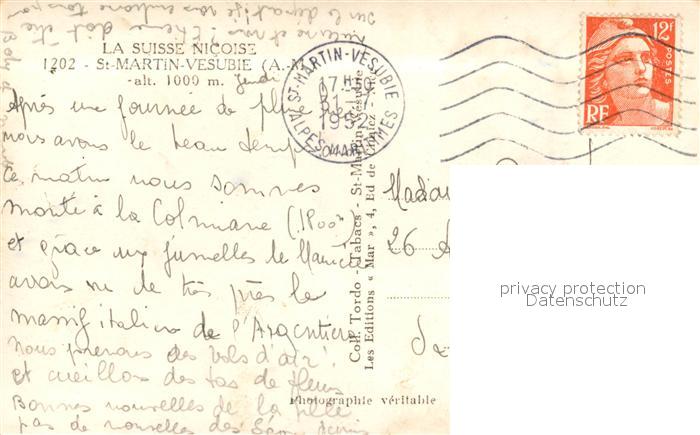 LA SUISSE NIÇOISE
1202 - St-MARTIN-VESUBIE (A.-M.)
-alt. 1000 m.
Jeudi
Après une journée de pluie
nous avons le beau temps
Ce matin nous sommes
monté à la Colmiane (1800m)
et grâce aux jumelles de Maurice
avons vu de très près le
massif italien de l'Argentiera
Nous prenons des bols d'air
et cueillons des tas de fleurs
Bonnes nouvelles de la fille
pas de nouvelles des
sur le départ
ST-MARTIN-VESUBIE
17H
31-5
1952
ALPES MARITIMES
12F
POSTES
RF
Coll. Tordo - Tabacs - St-Martin-Vésubie
Les Editions « Mar », 4, Ed de Cimiez -
Photographie véritable
Madam
26
privacy protection
Datenschutz